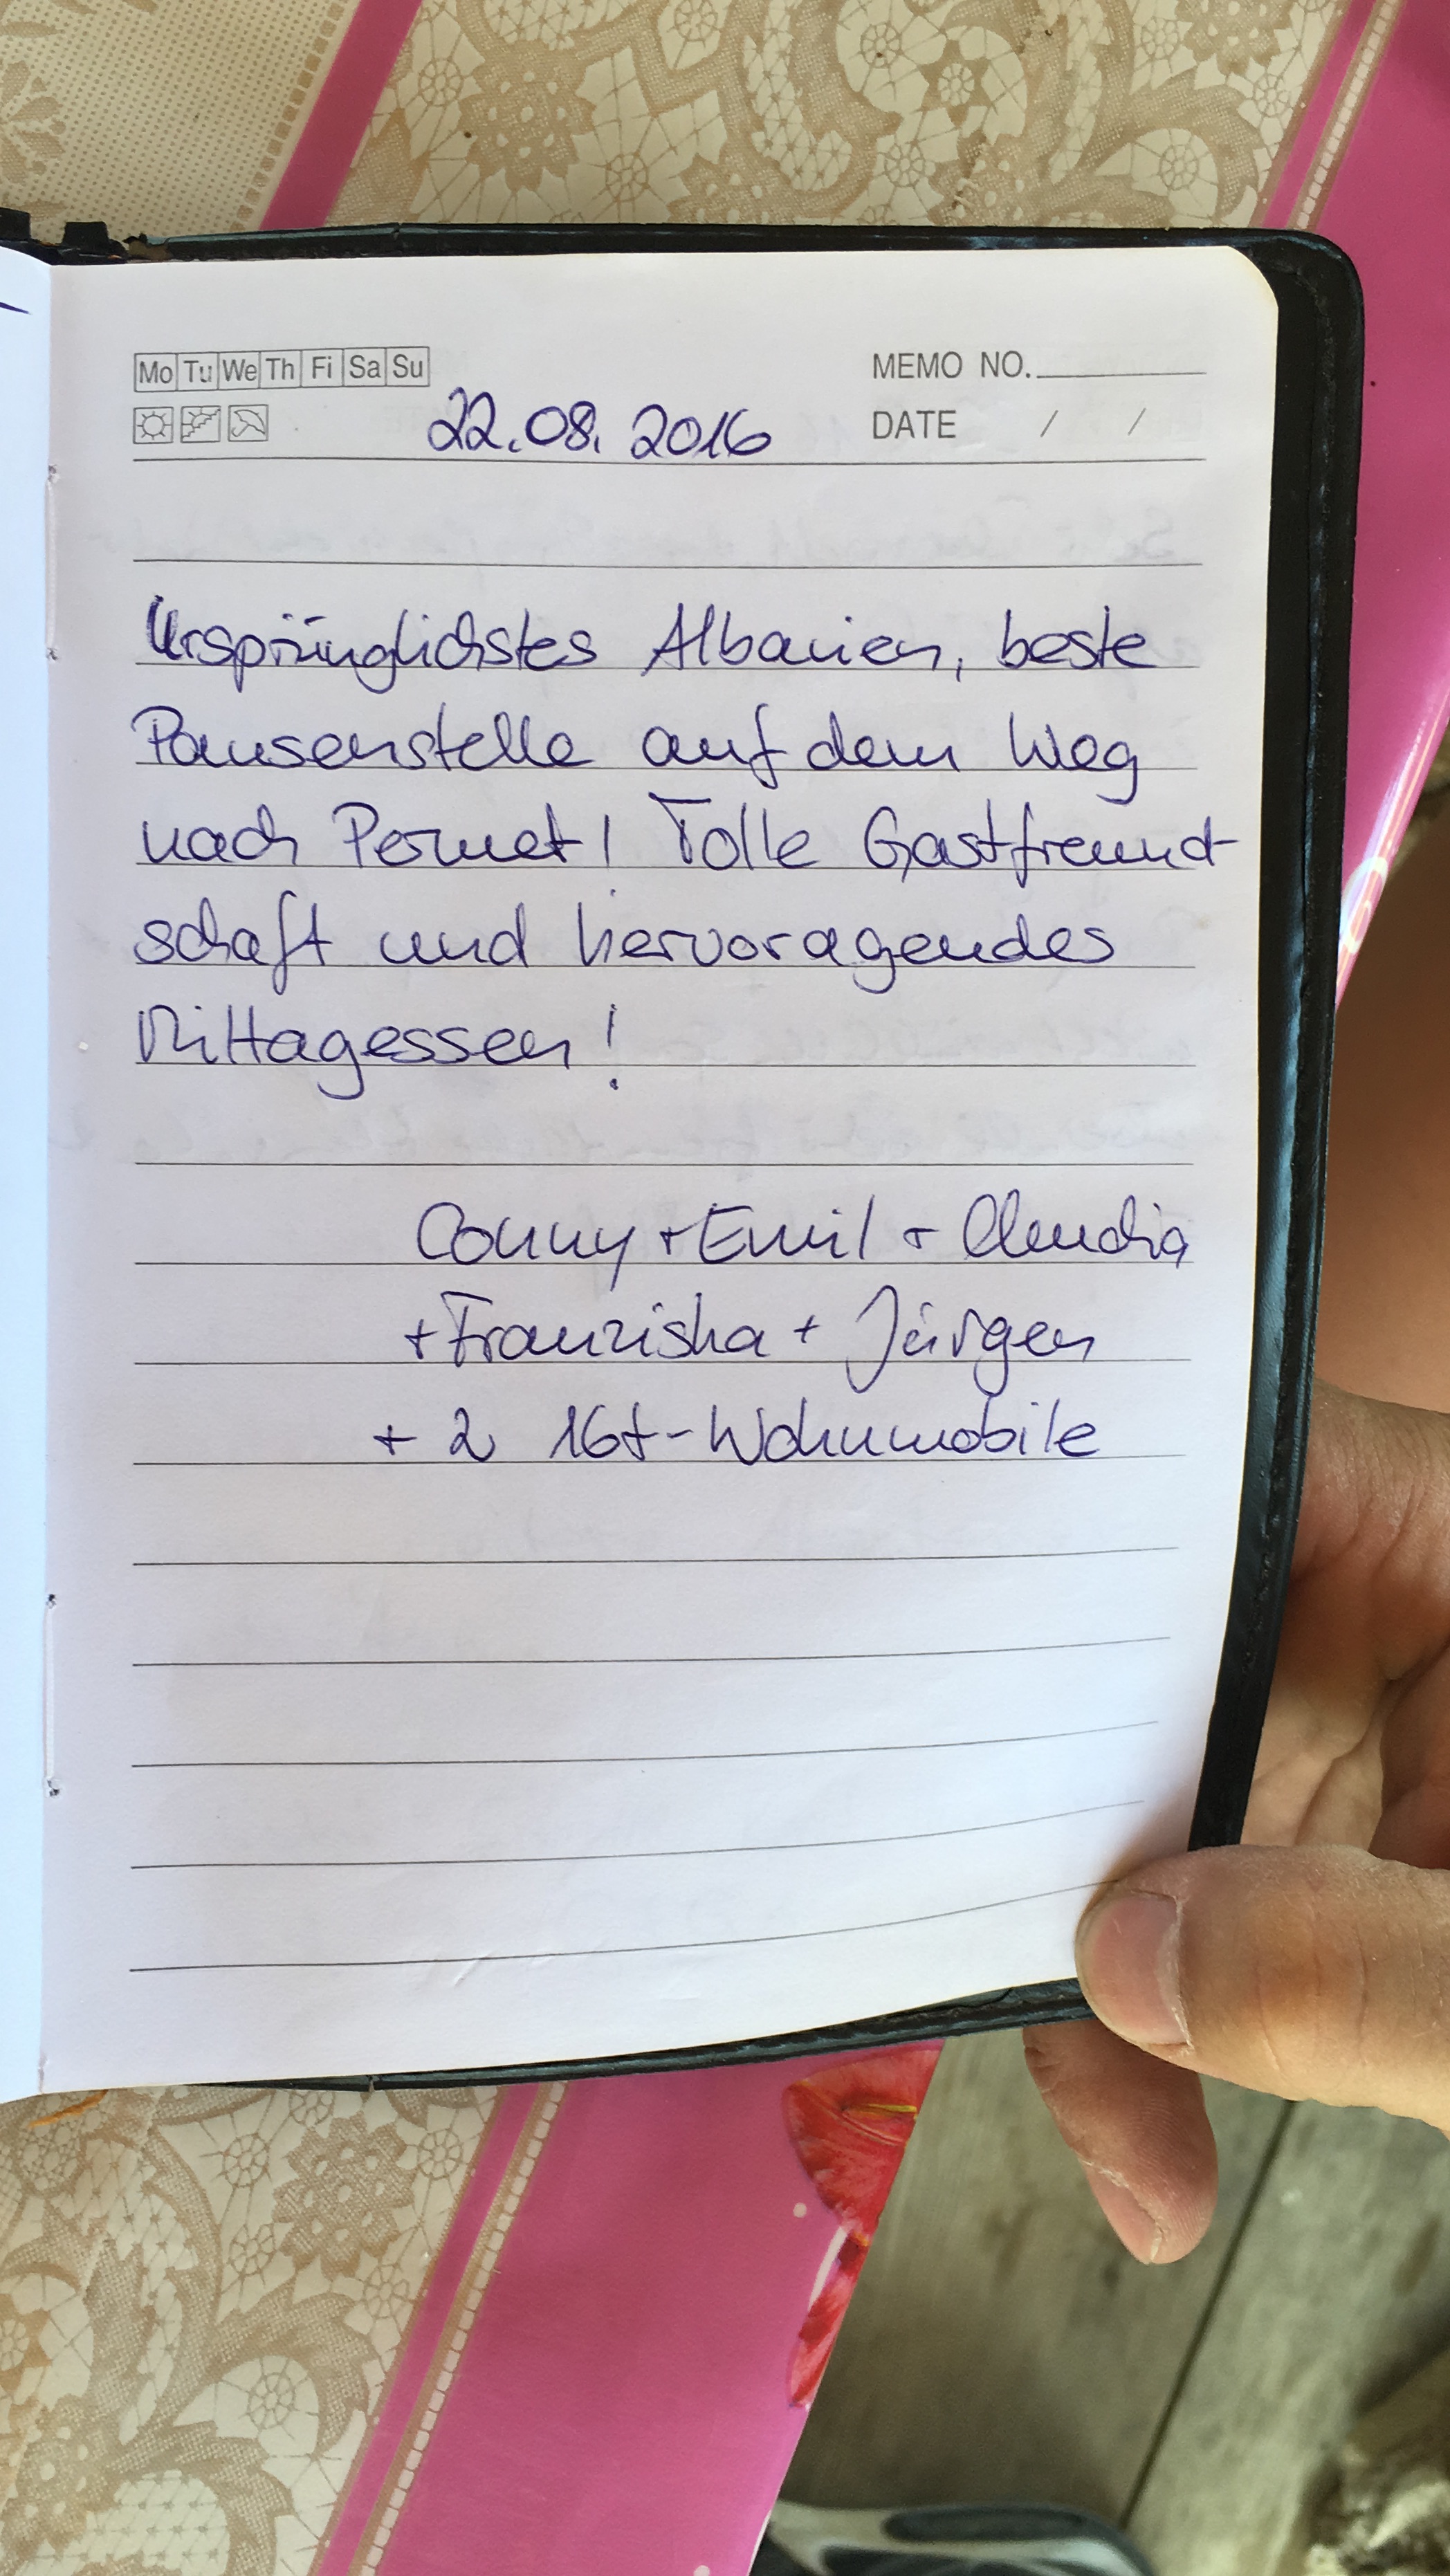 Mo Tu We Th Fi Sa Su
MEMO NO.
22.08.2016
DATE / /
Ursprünglichstes Albanien, beste
Pausenstelle auf dem Weg
nach Permet! Tolle Gastfreund-
schaft und hervoragendes
Mittagessen!
Conny + Emil + Claudia
+ Franziska + Jürgen
+ 2 16t-Wohnmobile